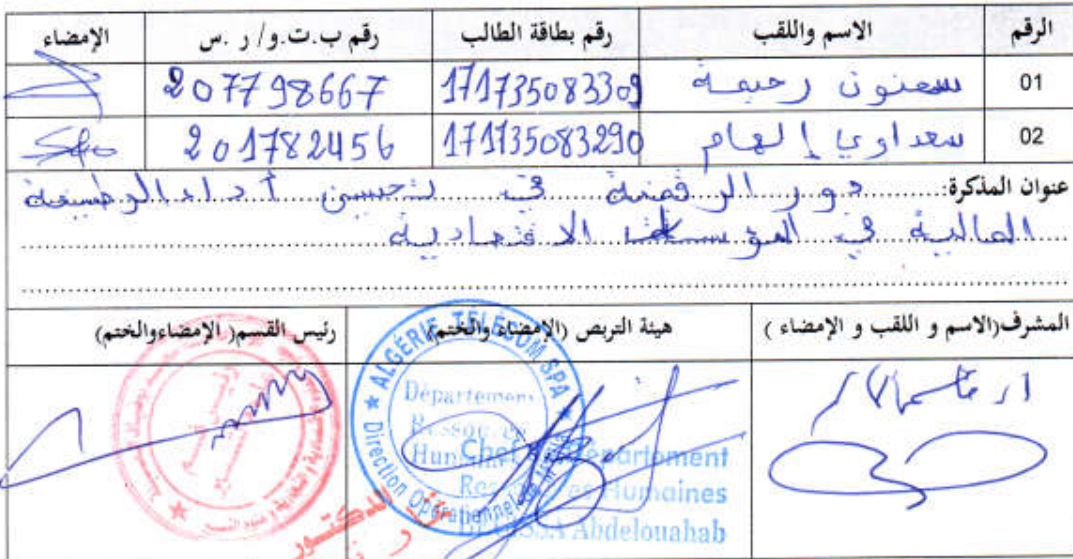 الرقم الاسم واللقب رقم بطاقة الطالب رقم ب.ت.و/ ر .س الإمضاء
01 سعنون رحيمة 171735083309 207798667
02 سعداوي إلهام 171735083290 201782456
عنوان المذكرة: دور الرقمنة في تحسين أداء الوظيفة
المالية في المؤسسات الاقتصادية
المشرف(الاسم و اللقب و الإمضاء ) هيئة التربص (الإمضاء والختم) رئيس القسم( الإمضاءوالختم)
ALGÉRIE TÉLÉCOM SPA
Direction Opérationnelle
Département
Ressources
Humaines
Chef Département
Ressources Humaines
Abdelouahab
الدكتور